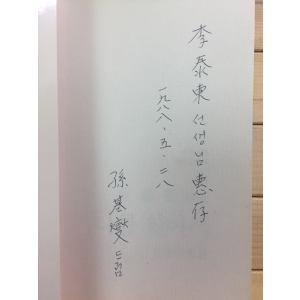 李泰東 선생님 惠存
一九八八·五·二八
孫基燮 드림